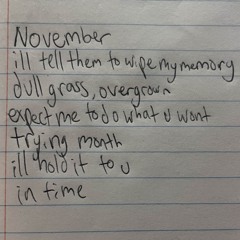 November
ill tell them to wipe my memory
dull grass, overgrown
expect me to do what u want
trying month
ill hold it to u
in time